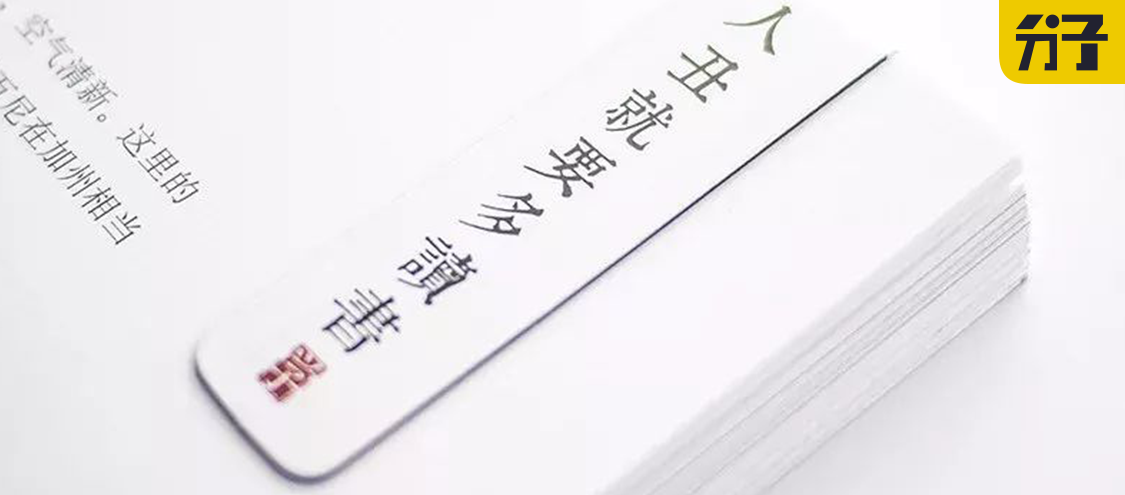 空气清新。这里的
尼在加州相当
人丑就要多讀書
分子